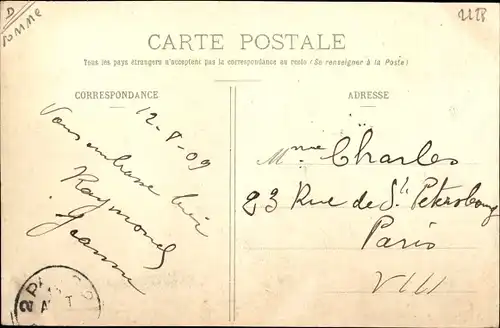 D
SOMME
CARTE POSTALE
Tous les pays étrangers n'acceptent pas la correspondance au recto (Se renseigner à la Poste)
CORRESPONDANCE
12-8-09
Vous embrasse bien
Raymond
Jeanne
ADRESSE
Mme Charles
23 Rue de St Petersbourg
Paris
VIII